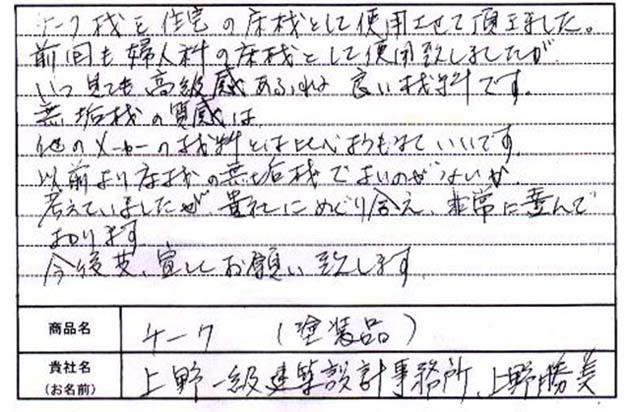 チーク材を住宅の床材として使用させて頂きました。
前回も婦人科の床材として使用致しましたが
いつ見ても高級感あふれる良い材料です。
無垢材の質感は
他のメーカーの材料とは比べようもなくいいです
以前より床材の無垢材でよいのがないか
考えていましたが貴社にめぐり合え、非常に喜んで
おります
今後共、宜しくお願い致します。
商品名 チーク (塗装品)
貴社名 上野一級建築設計事務所、上野勝美
(お名前)